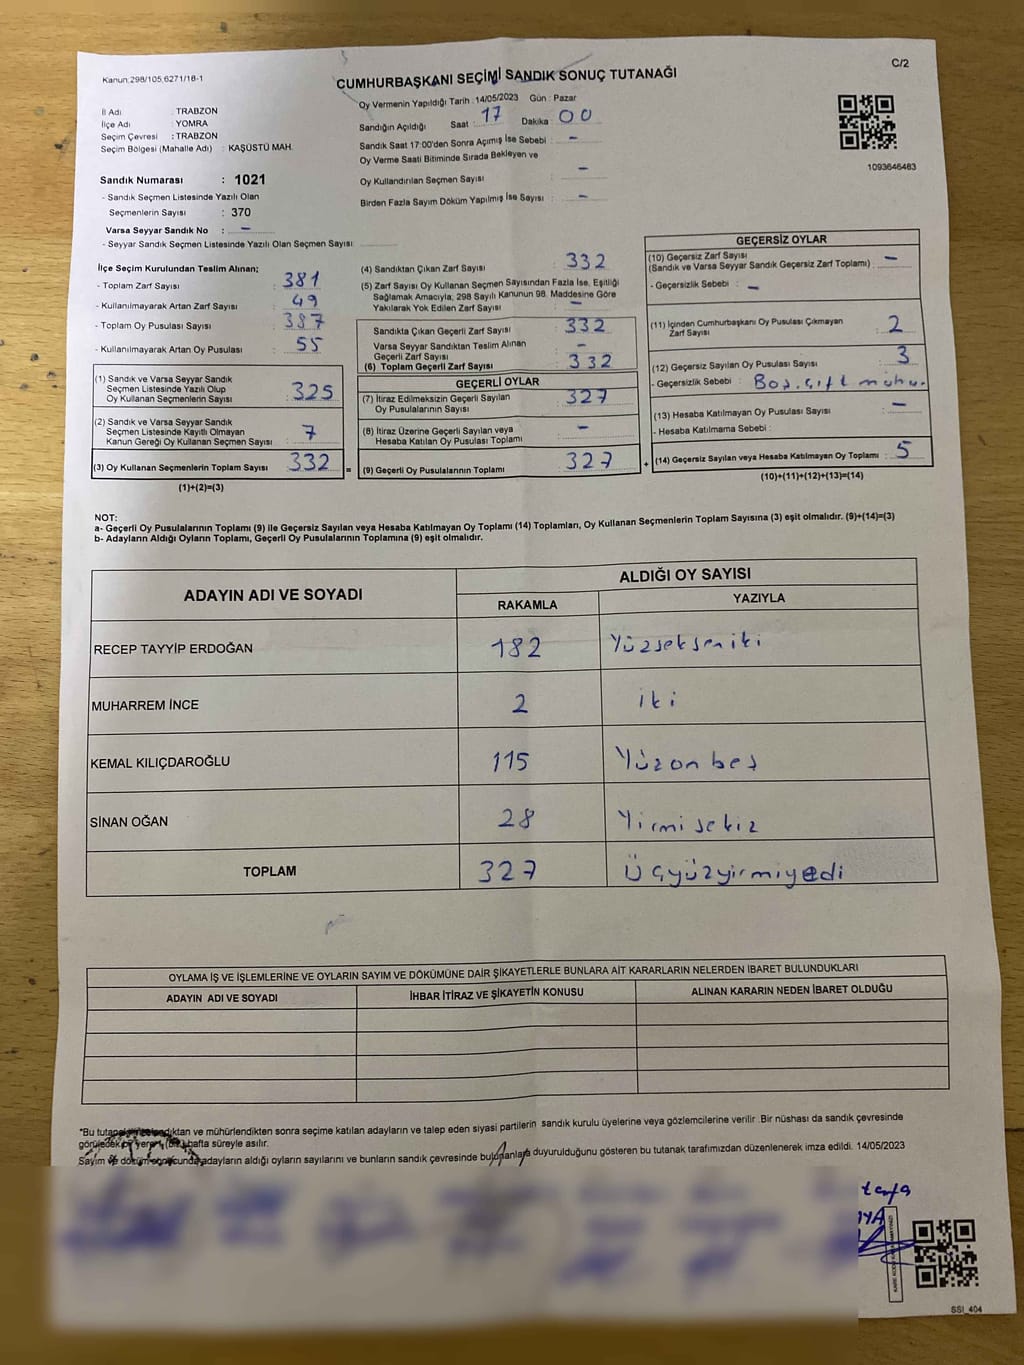 Kanun:298/105,6271/16-1
CUMHURBAŞKANI SEÇİMİ SANDIK SONUÇ TUTANAĞI
C/2
İl Adı : TRABZON
İlçe Adı : YOMRA
Seçim Çevresi : TRABZON
Seçim Bölgesi (Mahalle Adı) : KAŞÜSTÜ MAH.
Sandık Numarası : 1021
- Sandık Seçmen Listesinde Yazılı Olan
Seçmenlerin Sayısı : 370
Varsa Seyyar Sandık No : -
- Seyyar Sandık Seçmen Listesinde Yazılı Olan Seçmen Sayısı
Oy Vermenin Yapıldığı Tarih : 14/05/2023 Gün : Pazar
Sandığın Açıldığı Saat : 17 Dakika : 00
Sandık Saat 17:00'den Sonra Açımış İse Sebebi : -
Oy Verme Saati Bitiminde Sırada Bekleyen ve
Oy Kullandırılan Seçmen Sayısı : -
Birden Fazla Sayım Döküm Yapılmış İse Sayısı : -
1093646463
İlçe Seçim Kurulundan Teslim Alınan;
- Toplam Zarf Sayısı : 381
- Kullanılmayarak Artan Zarf Sayısı : 49
- Toplam Oy Pusulası Sayısı : 387
- Kullanılmayarak Artan Oy Pusulası : 55
(1) Sandık ve Varsa Seyyar Sandık
Seçmen Listesinde Yazılı Olup
Oy Kullanan Seçmenlerin Sayısı : 325
(2) Sandık ve Varsa Seyyar Sandık
Seçmen Listesinde Kayıtlı Olmayan
Kanun Gereği Oy Kullanan Seçmen Sayısı : 7
(3) Oy Kullanan Seçmenlerin Toplam Sayısı : 332 =
(1)+(2)=(3)
(4) Sandıktan Çıkan Zarf Sayısı : 332
(5) Zarf Sayısı Oy Kullanan Seçmen Sayısından Fazla İse, Eşitliği
Sağlamak Amacıyla, 298 Sayılı Kanunun 98. Maddesine Göre
Yakılarak Yok Edilen Zarf Sayısı : -
Sandıkta Çıkan Geçerli Zarf Sayısı : 332
Varsa Seyyar Sandıktan Teslim Alınan
Geçerli Zarf Sayısı : -
(6) Toplam Geçerli Zarf Sayısı : 332
GEÇERLİ OYLAR
(7) İtiraz Edilmeksizin Geçerli Sayılan
Oy Pusulalarının Sayısı : 327
(8) İtiraz Üzerine Geçerli Sayılan veya
Hesaba Katılan Oy Pusulası Toplamı : -
(9) Geçerli Oy Pusulalarının Toplamı : 327 +
GEÇERSİZ OYLAR
(10) Geçersiz Zarf Sayısı
(Sandık ve Varsa Seyyar Sandık Geçersiz Zarf Toplamı) : -
- Geçersizlik Sebebi : -
(11) İçinden Cumhurbaşkanı Oy Pusulası Çıkmayan
Zarf Sayısı : 2
(12) Geçersiz Sayılan Oy Pusulası Sayısı : 3
- Geçersizlik Sebebi : Boş, çift mühür
(13) Hesaba Katılmayan Oy Pusulası Sayısı : -
- Hesaba Katılmama Sebebi :
(14) Geçersiz Sayılan veya Hesaba Katılmayan Oy Toplamı : 5
(10)+(11)+(12)+(13)=(14)
NOT:
a- Geçerli Oy Pusulalarının Toplamı (9) ile Geçersiz Sayılan veya Hesaba Katılmayan Oy Toplamı (14) Toplamları, Oy Kullanan Seçmenlerin Toplam Sayısına (3) eşit olmalıdır. (9)+(14)=(3)
b- Adayların Aldığı Oyların Toplamı, Geçerli Oy Pusulalarının Toplamına (9) eşit olmalıdır.
ADAYIN ADI VE SOYADI
ALDIĞI OY SAYISI
RAKAMLA YAZIYLA
RECEP TAYYİP ERDOĞAN 182 Yüzsekseniki
MUHARREM İNCE 2 iki
KEMAL KILIÇDAROĞLU 115 Yüzonbeş
SİNAN OĞAN 28 Yirmisekiz
TOPLAM 327 Üçyüzyirmiyedi
OYLAMA İŞ VE İŞLEMLERİNE VE OYLARIN SAYIM VE DÖKÜMÜNE DAİR ŞİKAYETLERLE BUNLARA AİT KARARLARIN NELERDEN İBARET BULUNDUKLARI
ADAYIN ADI VE SOYADI İHBAR İTİRAZ VE ŞİKAYETİN KONUSU ALINAN KARARIN NEDEN İBARET OLDUĞU
*Bu tutanak imzalandıktan ve mühürlendikten sonra seçime katılan adayların ve talep eden siyasi partilerin sandık kurulu üyelerine veya gözlemcilerine verilir. Bir nüshası da sandık çevresinde
görülecek bir yere 1 (bir) hafta süreyle asılır.
Sayım ve döküm sonucunda adayların aldığı oyların sayılarını ve bunların sandık çevresinde bulunanlara duyurulduğunu gösteren bu tutanak tarafımızdan düzenlenerek imza edildi. 14/05/2023
SSI_404